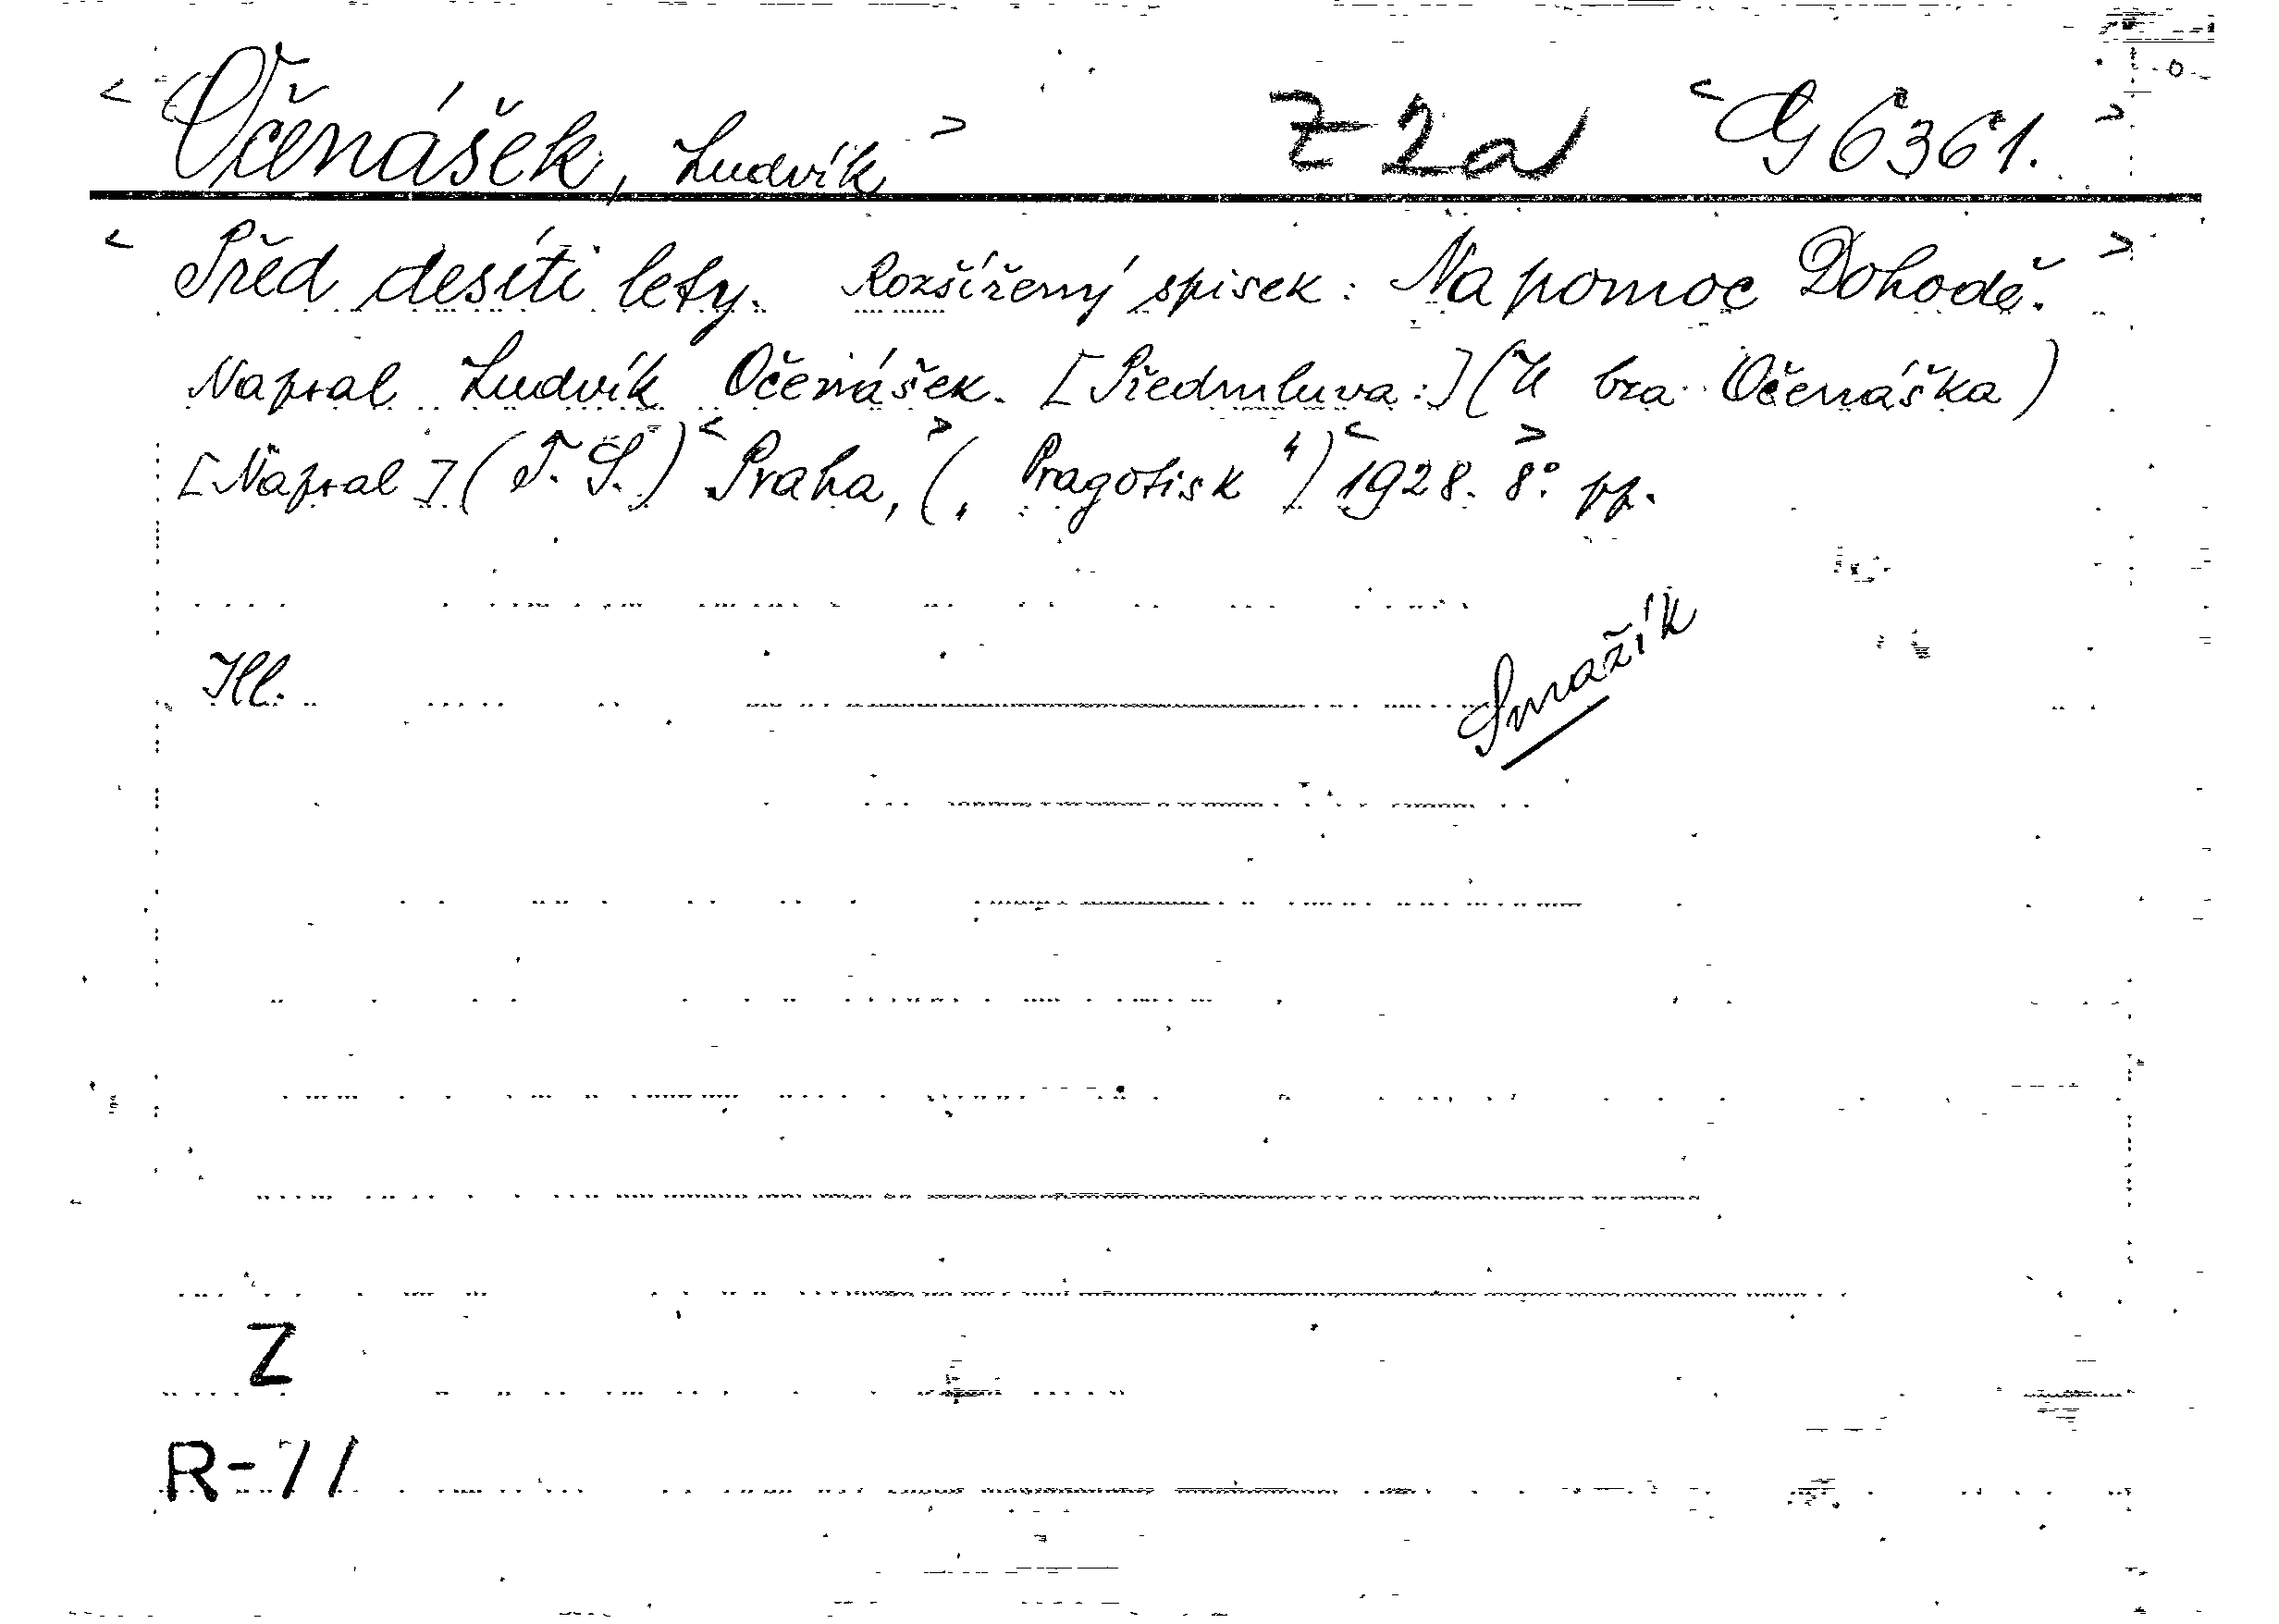 < Očenášek, Ludvík > Z 2a < G 6361. >
< Před desíti lety. Rozšířený spisek: Na pomoc Dohodě. >
Napsal Ludvík Očenášek. [Předmluva:] (U bra Očenáška)
[Napsal] (F. S.) < Praha, > („Pragotisk“) < 1928. 8°. > pp.
Smažík
Ill.
Z
R-71